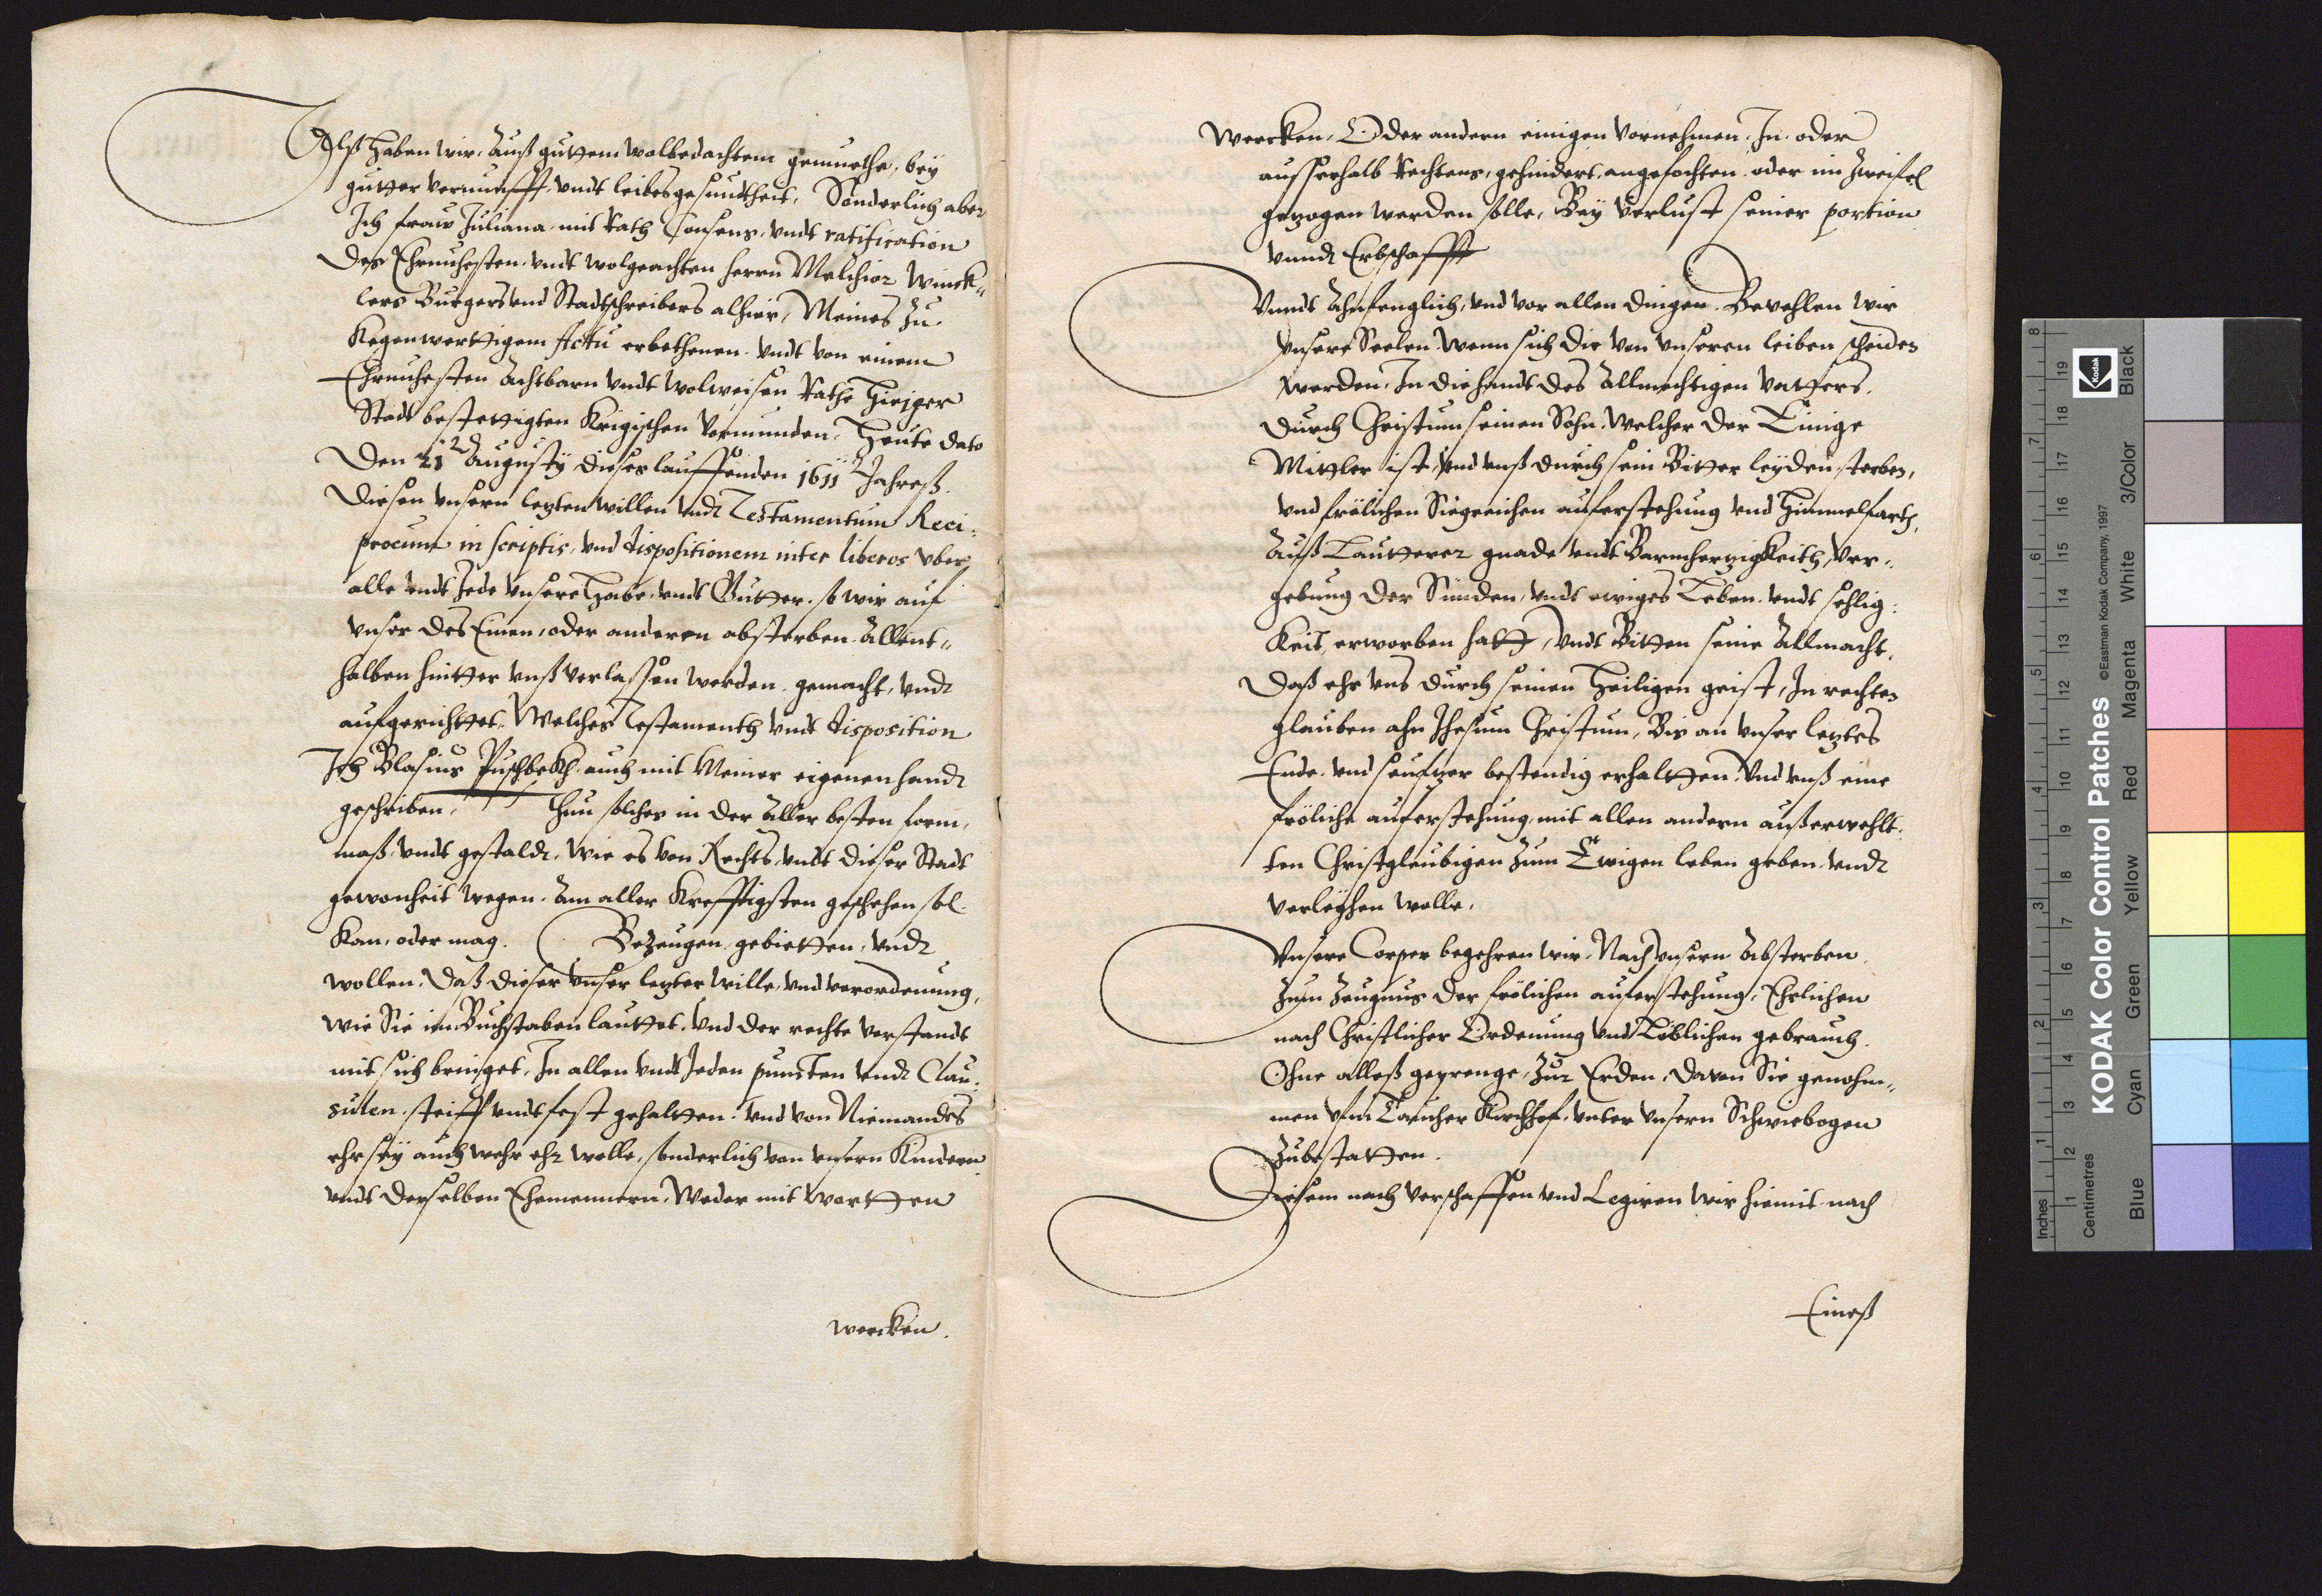 Alß haben wir, Auß guttem wolbedachtem gemuethe, bey
gutter vernunfft, undt leibes gesundtheit, Sonderlich aber
Ich fraw Juliana mit Rath Consens, undt ratification
Des Ehrnuhesten undt wolgeachten herrn Melchior Winck„
lers Burgers und Stadtschreibers alhier, Meines Zu
Kegenwerttigem Actu erbethenen undt von einem
Ehrnuhesten Achtbarn undt wolweisen Rathe Hiesger
Stadt bestettigten Krigischen Vormunden, Heute dato
Den 21 Augusty dieses lauffenden 1611 Jahreß
Diesen unsern letzten willen undt Testamentum Reci:
procum in scriptis, und dispositionem inter liberos uber
alle undt Jede unsere Habe, undt Gutter, so wir auf
unser des Einen, oder anderen absterben Allent„
halben hintter unß verlassen werden gemacht, undt
aufgerichttet, Welches Testamenth undt disposition
Ich Blasius Puschbekh auch mit Meiner eigenen handt
geschrieben, Thun solches in der Aller besten form,
maß undt gestaldt, wie es von Rechts, undt dieser Stadt
gewonheit wegen, Am aller Krefftigsten geschehen sol
Kan, oder mag. Bezeugen, gebietten, undt
wollen, Daß dieser unser letzter wille, und verordenung,
wie Sie im Buchstaben lauttet, Und der rechte verstandt
mit sich bringet, In allen undt Jeden puncten undt Clau:
sulen, steiff undt fest gehaltten, Und von Niemandes
ehr sey auch wehr ehr wolle, sonderlich von unsern Kindern
undt derselben Ehemennern, Weder mit wortten
wercken.
wercken, Oder andern einigen vornehmen, In oder
ausserhalb Rechtens, gehindert, angefochten oder im Zweifel
gezogen werden solle, Bey Verlust seiner portion
unndt Erbschafft
Unndt Ahnfenglich, und vor allen dingen Bevehlen wir
unsere Seelen, wenn sich die von unseren leiben scheiden
werden, In die handt des Allmechtigen Vatters,
Durch Christum seinen Sohn, welcher der Einige
Mittler ist, und unß durch sein Bitter leyden, sterben,
und frölichen Siegreichen auferstehung und Himmelfarth,
Auß Lautterer gnade undt Barmhertzigkeith, Ver„
gebung der Sünden, undt ewiges Leben undt sehlig:
Keit, erworben hatt, Undt Bitten seine Allmacht,
Daß ehr uns durch seinen Heiligen geist, In rechten
glauben ahn Jhesum Christum, Bis an unser letztes
Ende und seufzer bestendig erhaltten, Und unß eine
fröliche auferstehung, mit allen andern außerwehlt:
ten Christgläubigen Zum Ewigen leben geben undt
verleyhen wolle.
Unsere Corper begehren wir, Nach unsern Absterben
Zum Zeugnus der frölichen auferstehung, Ehrlichen
nach Christlicher Ordenung und Löblichen gebrauch
Ohne alleß geprenge, Zur Erden, davon Sie genohm„
men ufm Taucher Kirchhof, unter unsern Schwiebogen
Zubestatten.
Diesem nach verschaffen und Legiren wir hiemit nach
Eineß
Inches
Centimetres
KODAK Color Control Patches
©Eastman Kodak Company, 1997
Kodak
Blue
Cyan
Green
Yellow
Red
Magenta
White
3/Color
Black